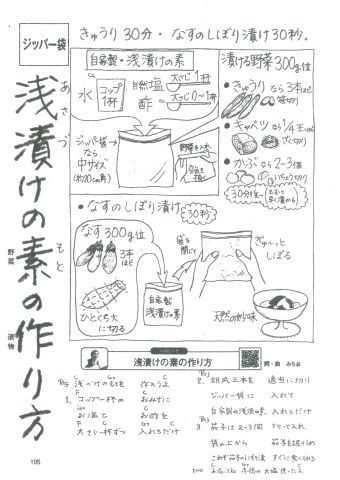 ジッパー袋
浅漬けの素の作り方
あさづ
もと
野菜
漬物
きゅうり30分・なすのしぼり漬け30秒。
自家製・浅漬けの素
水
コップ1杯
自然塩
大さじ1杯
酢
大さじ0〜1杯
ジッパー袋
なら
中サイズ
(約20cm角)
野菜を入れ
空気を抜く
漬ける野菜300g位
・きゅうり なら3本ほど
・キャベツ なら1/4玉
ざく切り
・かぶ なら2~3個
いちょう切り
30分位〜
もむと早く漬かる
・なすのしぼり漬け
30秒
なす300g位
3本ほど
ひとくち大
に切る
自家製
浅漬けの素
袋を閉じて
ぎゅ〜っと
しぼる
天然の妙味
浅漬けの素の作り方
詞・曲 みちお
浅づけのもとを 作ろうよ
1. コップ一杯の お水に
お塩と お酢を
大さじ一杯ずつ 入れるだけ
2. 胡瓜三本を 適当に切り
ジッパー袋に 入れて
自家製の浅漬の素 入れるだけ
3. 茄子は2~3個 切って入れ
袋の上から 茄子を握りしめ
これぞ茄子のしぼり漬 すぐに食べられる
105